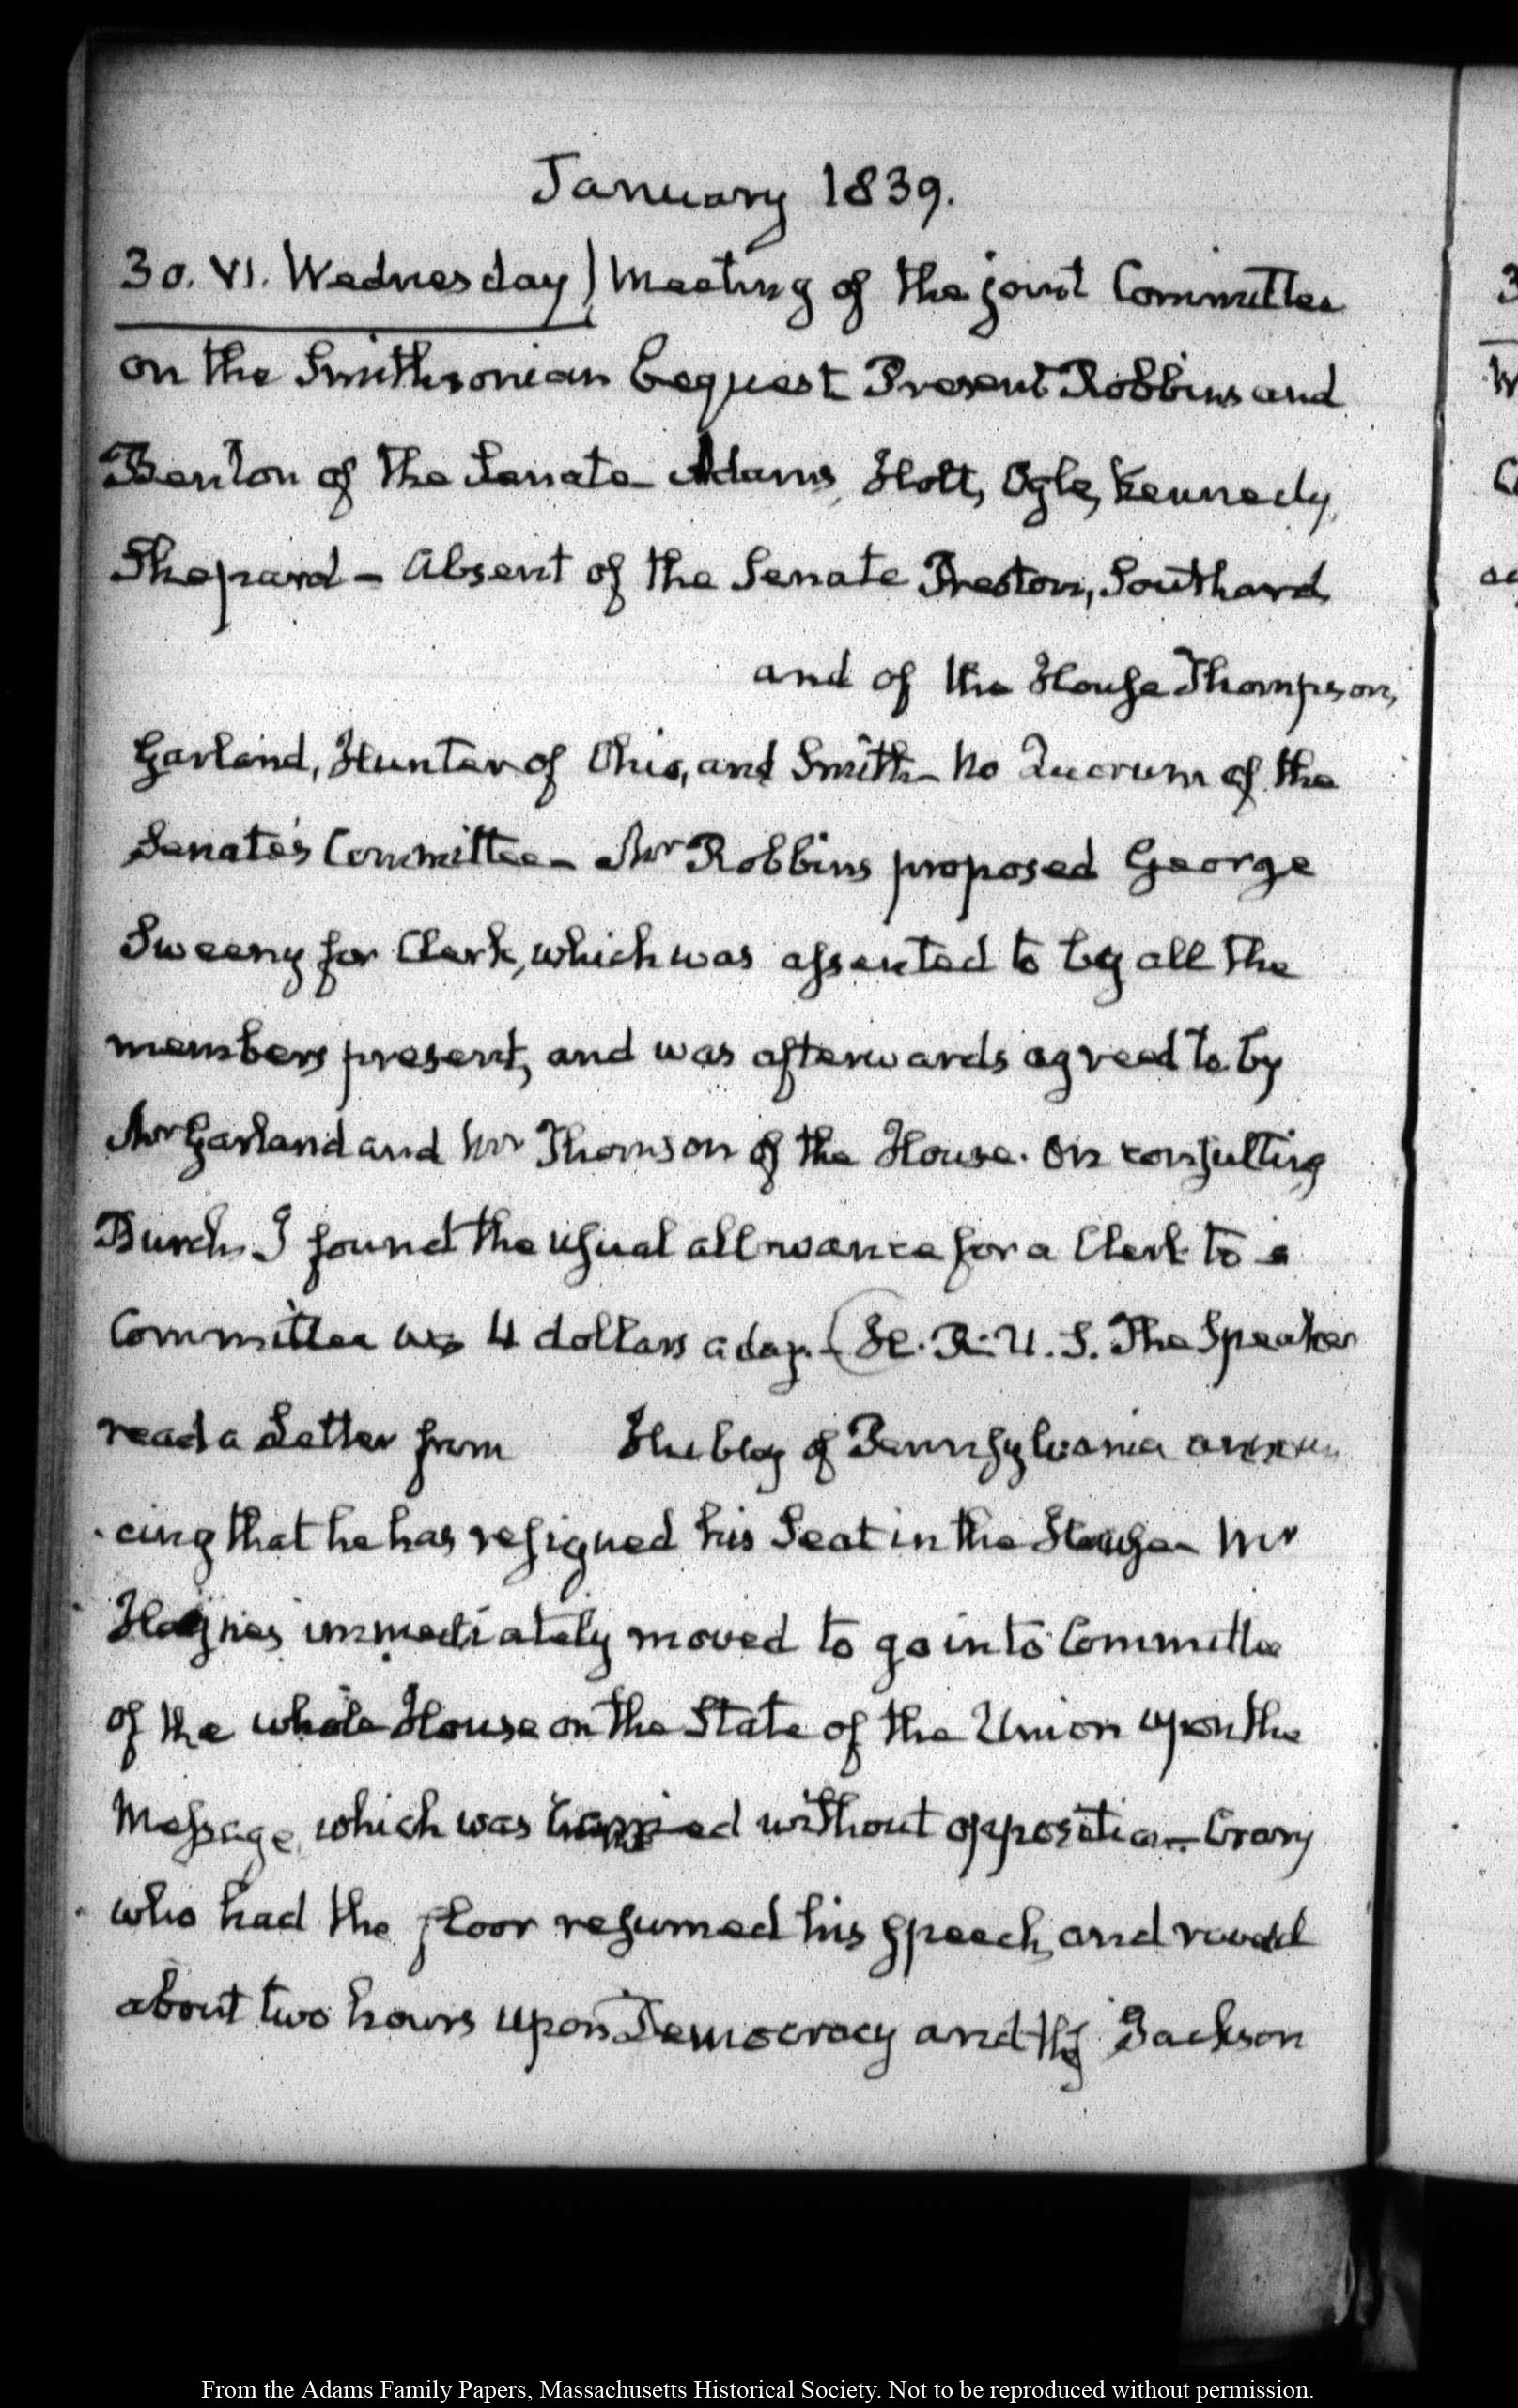 January 1839.
30. VI. Wednesday) Meeting of the joint Committee
on the Smithsonian bequest Present Robbins and
Benton of the Senate Adams, Holt, Ogle, Kennedy,
Shepard – Absent of the Senate Preston, Southard
and of the House Thompson,
Garland, Hunter of Ohio, and Smith – No Quorum of the
Senate's Committee – Mr Robbins proposed George
Sweeny for Clerk, which was assented to by all the
members present, and was afterwards agreed to by
Mr Garland and Mr Thomson of the House. On consulting
Burch I found the usual allowance for a Clerk to a
Committee was 4 dollars a day. – (H. R. U. S. The Speaker
read a Letter from Hubley of Pennsylvania announ
cing that he has resigned his Seat in the House – Mr
Haynes immediately moved to go into Committee
of the whole House on the State of the Union upon the
Message, which was carried without opposition – Crary
who had the floor resumed his speech, and
about two hours upon Democracy and the Jackson
From the Adams Family Papers, Massachusetts Historical Society. Not to be reproduced without permission.